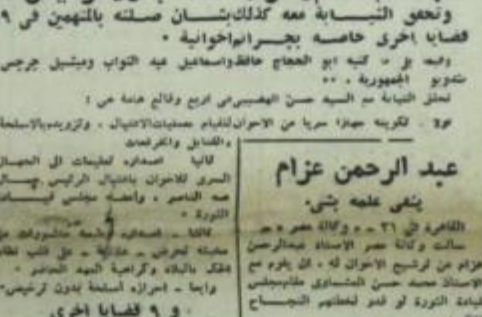 وتحقق النيابة معه كذلك بشان صلته بالمتهمين في ٩
قضايا اخرى خاصه بجرائم اخوانية .
وفيما يلي ما كتبه ابو الحجاج حافظ واسماعيل عبد التواب وميشيل جرجس
مندوبو الجمهورية . ••
تحقق النيابة مع السيد حسن الهضيبي في اربع وقائع هامة هي :
اولا . تكوينه جهازا سريا من الاخوان للقيام بعمليات الاغتيال . وتزويده بالاسلحة
والقنابل والمفرقعات
ثانيا اصداره تعليمات الى الجهاز
السرى للاخوان باغتيال الرئيس جمال
عبد الناصر . واعضاء مجلس قيادة
الثورة .
ثالثا _ اصداره
نظام
الحكم بالبلاد وكراهية العهد الحاضر .
رابعا _ احرازه اسلحة بدون ترخيص
و ٩ قضايا اخرى
عبد الرحمن عزام
ينفى علمه بشىء
القاهرة في ٢١ _ وكالة مصر _
سالت وكالة مصر الاستاذ عبدالرحمن
عزام عن ترشيح الاخوان له . لان يقوم مع
الاستاذ محمد حسن العشماوى مقام مجلس
قيادة الثورة لو قدر لخطتهم النجاح